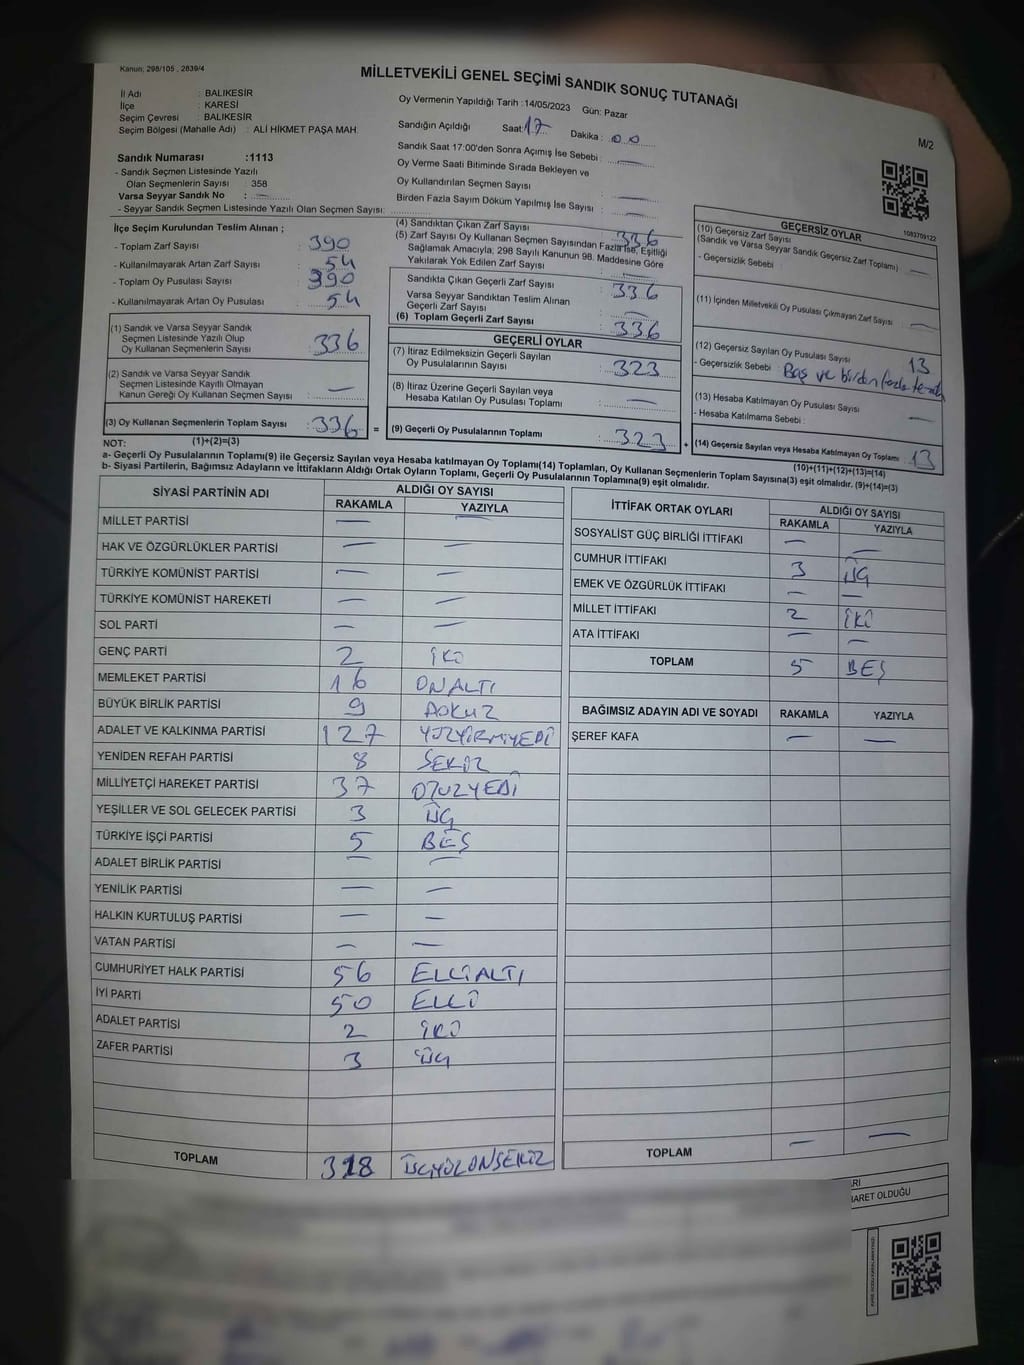 Kanun: 298/105 , 2839/4
MİLLETVEKİLİ GENEL SEÇİMİ SANDIK SONUÇ TUTANAĞI
M/2
İl Adı : BALIKESİR
İlçe : KARESİ
Seçim Çevresi : BALIKESİR
Seçim Bölgesi (Mahalle Adı) : ALİ HİKMET PAŞA MAH.
Sandık Numarası :1113
- Sandık Seçmen Listesinde Yazılı
Olan Seçmenlerin Sayısı : 358
Varsa Seyyar Sandık No : —
- Seyyar Sandık Seçmen Listesinde Yazılı Olan Seçmen Sayısı:
Oy Vermenin Yapıldığı Tarih :14/05/2023 Gün: Pazar
Sandığın Açıldığı Saat: 17 Dakika : 00
Sandık Saat 17:00'den Sonra Açımış İse Sebebi : —
Oy Verme Saati Bitiminde Sırada Bekleyen ve
Oy Kullandırılan Seçmen Sayısı —
Birden Fazla Sayım Döküm Yapılmış İse Sayısı : —
1083709122
İlçe Seçim Kurulundan Teslim Alınan ;
- Toplam Zarf Sayısı : 390
- Kullanılmayarak Artan Zarf Sayısı : 54
- Toplam Oy Pusulası Sayısı : 390
- Kullanılmayarak Artan Oy Pusulası : 54
(1) Sandık ve Varsa Seyyar Sandık
Seçmen Listesinde Yazılı Olup
Oy Kullanan Seçmenlerin Sayısı : 336
(2) Sandık ve Varsa Seyyar Sandık
Seçmen Listesinde Kayıtlı Olmayan
Kanun Gereği Oy Kullanan Seçmen Sayısı : —
(3) Oy Kullanan Seçmenlerin Toplam Sayısı : 336 =
(4) Sandıktan Çıkan Zarf Sayısı : 336
(5) Zarf Sayısı Oy Kullanan Seçmen Sayısından Fazla İse, Eşitliği
Sağlamak Amacıyla, 298 Sayılı Kanunun 98. Maddesine Göre
Yakılarak Yok Edilen Zarf Sayısı : —
Sandıkta Çıkan Geçerli Zarf Sayısı : 336
Varsa Seyyar Sandıktan Teslim Alınan
Geçerli Zarf Sayısı : —
(6) Toplam Geçerli Zarf Sayısı : 336
GEÇERLİ OYLAR
(7) İtiraz Edilmeksizin Geçerli Sayılan
Oy Pusulalarının Sayısı : 323
(8) İtiraz Üzerine Geçerli Sayılan veya
Hesaba Katılan Oy Pusulası Toplamı : —
(9) Geçerli Oy Pusulalarının Toplamı : 323 +
GEÇERSİZ OYLAR
(10) Geçersiz Zarf Sayısı
(Sandık ve Varsa Seyyar Sandık Geçersiz Zarf Toplamı) —
- Geçersizlik Sebebi :
(11) İçinden Milletvekili Oy Pusulası Çıkmayan Zarf Sayısı : —
(12) Geçersiz Sayılan Oy Pusulası Sayısı : 13
- Geçersizlik Sebebi : Boş ve birden fazla
(13) Hesaba Katılmayan Oy Pusulası Sayısı : —
- Hesaba Katılmama Sebebi :
(14) Geçersiz Sayılan veya Hesaba Katılmayan Oy Toplamı : 13
(10)+(11)+(12)+(13)=(14)
NOT: (1)+(2)=(3)
a- Geçerli Oy Pusulalarının Toplamı(9) ile Geçersiz Sayılan veya Hesaba katılmayan Oy Toplamı(14) Toplamları, Oy Kullanan Seçmenlerin Toplam Sayısına(3) eşit olmalıdır. (9)+(14)=(3)
b- Siyasi Partilerin, Bağımsız Adayların ve İttifakların Aldığı Ortak Oyların Toplamı, Geçerli Oy Pusulalarının Toplamına(9) eşit olmalıdır.
SİYASİ PARTİNİN ADI ALDIĞI OY SAYISI
RAKAMLA YAZIYLA
MİLLET PARTİSİ — —
HAK VE ÖZGÜRLÜKLER PARTİSİ — —
TÜRKİYE KOMÜNİST PARTİSİ — —
TÜRKİYE KOMÜNİST HAREKETİ — —
SOL PARTİ — —
GENÇ PARTİ 2 İKİ
MEMLEKET PARTİSİ 16 ONALTI
BÜYÜK BİRLİK PARTİSİ 9 DOKUZ
ADALET VE KALKINMA PARTİSİ 127 YÜZYİRMİYEDİ
YENİDEN REFAH PARTİSİ 8 SEKİZ
MİLLİYETÇİ HAREKET PARTİSİ 37 OTUZYEDİ
YEŞİLLER VE SOL GELECEK PARTİSİ 3 ÜÇ
TÜRKİYE İŞÇİ PARTİSİ 5 BEŞ
ADALET BİRLİK PARTİSİ — —
YENİLİK PARTİSİ — —
HALKIN KURTULUŞ PARTİSİ — —
VATAN PARTİSİ — —
CUMHURİYET HALK PARTİSİ 56 ELLİALTI
İYİ PARTİ 50 ELLİ
ADALET PARTİSİ 2 İKİ
ZAFER PARTİSİ 3 ÜÇ
TOPLAM 318 ÜÇYÜZONSEKİZ
İTTİFAK ORTAK OYLARI ALDIĞI OY SAYISI
RAKAMLA YAZIYLA
SOSYALİST GÜÇ BİRLİĞİ İTTİFAKI — —
CUMHUR İTTİFAKI 3 ÜÇ
EMEK VE ÖZGÜRLÜK İTTİFAKI — —
MİLLET İTTİFAKI 2 İKİ
ATA İTTİFAKI — —
TOPLAM 5 BEŞ
BAĞIMSIZ ADAYIN ADI VE SOYADI RAKAMLA YAZIYLA
ŞEREF KAFA — —
TOPLAM — —
ARI
BARET OLDUĞU